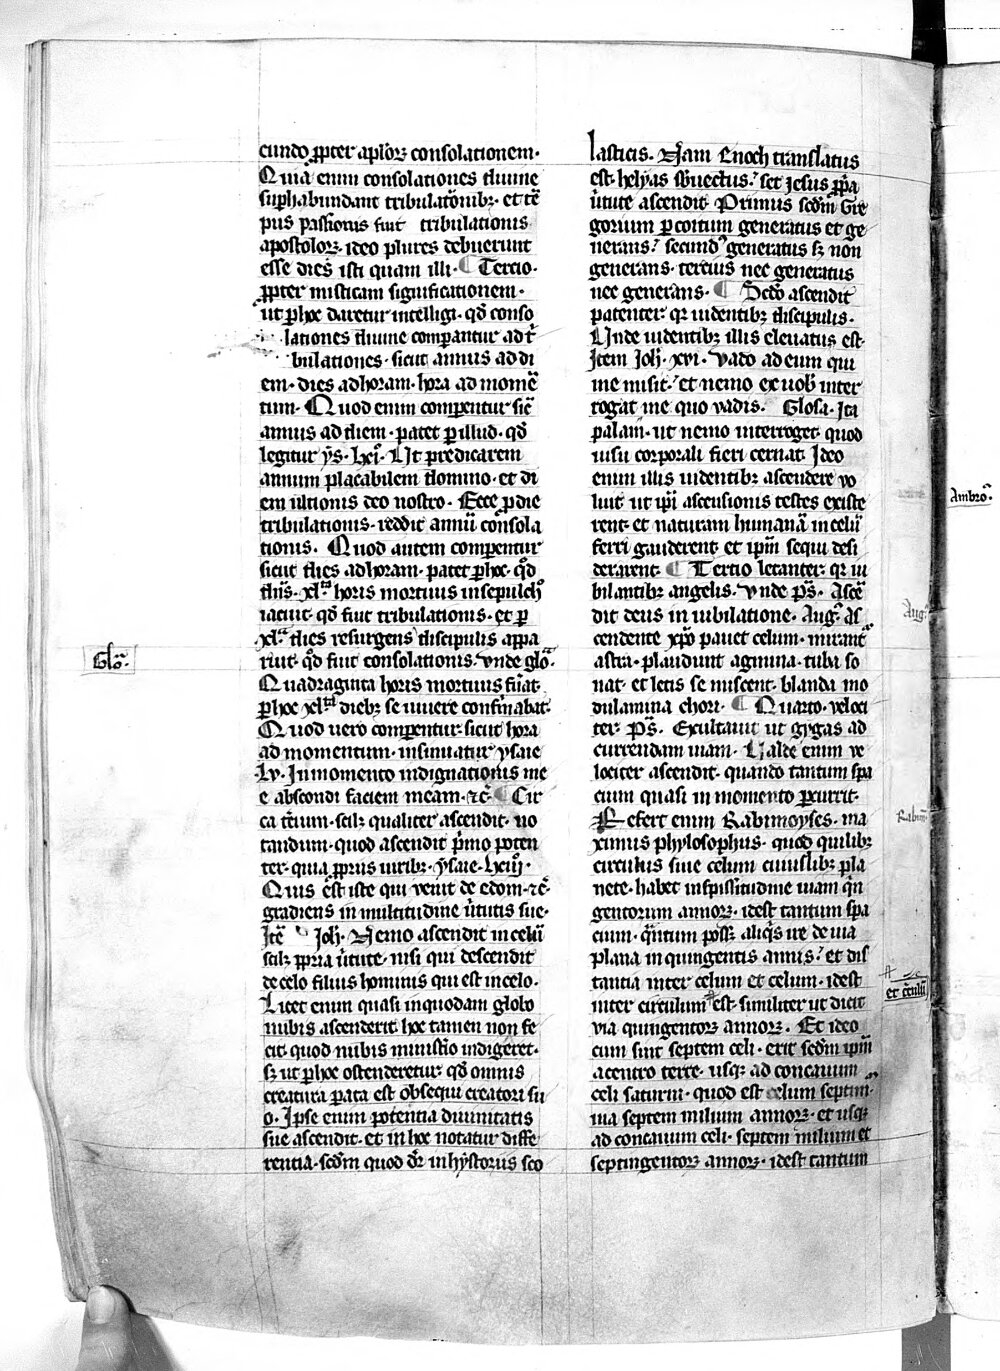 cundo ꝓpter aplōꝝ consolationem·
Quia enim consolationes diuine
suꝑhabundant tribulatōnibꝫ· et tē
pus passionis fuit tribulationis
apostoloꝝ· ideo plures debuerunt
esse dies isti quam illi· ¶ Tercio·
ꝓpter misticam significationem·
ut ꝑ hoc daretur intelligi· qd̄ conso
lationes diuine comparantur ad t̄
bulationes· sicut annus ad di
em· dies ad horam· hora ad momē
tum· Quod enim comparentur sic̄
annus ad diem· patet ꝑ illud· qd̄
legitur ys· lxi· Ut predicarem
annum placabilem domino· et di
em ultionis deo nostro· Ecce ꝓ die
tribulationis· reddit annū consola
tionis· Quod autem comparentur
sicut dies ad horam· patet ꝑ hoc· qd̄
dn̄s· xl·ta horis mortuus in sepulch̓
iacuit· qd̄ fuit tribulationis· et ꝑ
xl·ta dies resurgens discipulis appa
ruit· qd̄ fuit consolationis· vnde glō·
Quadraginta horis mortuus fūat·
ꝓ hoc xl·ta diebꝫ se uiuere confirmabat·
Quod uero comparentur· sicut hora
ad momentum· insinuatur ysaie
·Lv· In momento indignationis me
e abscondi faciem meam· ⁊c̄· ¶ Cir
ca t̄cium· scilꝫ qualiter ascendit· no
tandum· quod ascendit p̄mo poten
ter· quia ꝓprijs uiribꝫ· ysaie· lxiij·
Quis est iste qui venit de edom· ⁊c̄·
gradiens in multitudine ūtutis sue·
Itē Joh̄· Nemo ascendit in celū
scilꝫ ꝓpria ūtute· nisi qui descendit
de celo filius hominis qui est in celo·
Licet enim quasi in quodam globo
nubis ascenderit· hoc tamen non fe
cit· quod nubis ministerio indigeret·
sꝫ ut ꝑ hoc ostenderetur· qd̄ omnis
creatura parata est obsequi creatori su
o· Ipse enim potentia diuinitatis
sue ascendit· et in hoc notatur diffe
rentia· scd̄m quod dr̄ in hystorijs sco
lasticis· Nam Enoch translatus
est· helyas subuectus· set Jesus ꝓp̄a
ūtute ascendit· Primus scd̄m Gre
gorium ꝑ coitum generatus et ge
nerans· secund̓ generatus sꝫ non
generans· tercius nec generatus
nec generans· ¶ Scd̄o ascendit
patenter· qr uidentibꝫ discipulis·
Unde uidentibꝫ illis eleuatus est·
Item Joh̄· xvi· Vado ad eum qui
me misit· et nemo ex uob̄ inter
rogat me quo vadis· Glosa· Ita
palam· ut nemo interroget· quod
uisu corporali fieri cernat· Ideo
enim illis uidentibꝫ ascendere uo
luit· ut ip̄i ascensionis testes existe
rent· et naturam humanā in celū
ferri gauderent· et ip̄m sequi desi
derarent· ¶ Tercio letanter· qr iu
bilantibꝫ angelis· Vnde ps̄· Ascē
dit deus in iubilatione· Aug̓· As
cendente xp̄o pauet celum· mirant᷑
astra· plaudunt agmina· tuba so
nat· et letis se miscent· blanda mo
dulamina chori· ¶ Quarto· veloci
ter· Ps̄· Exultauit ut gygas ad
currendam uiam· Valde enim ve
lociter ascendit· quando tantum spa
cium quasi in momento ꝑcurrit·
Refert enim Rabimoyses· ma
ximus phylosophus· quod quilibꝫ
circulus siue celum cuiuslibꝫ pla
nete· habet in spissitudine uiam q̄n
gentorum annoꝝ· idest tantum spa
cium· q̄ntum possꝫ aliq̓s ire de uia
plana in quingentis annis· et dis
tantia inter celum et celum· idest
inter circulum est· similiter ut dicit
via quingentoꝝ annoꝝ· Et ideo
cum sint septem celi· erit scd̄m ip̄m
a centro terre· usqꝫ ad concauum
celi saturni· quod est celum septim·
uia septem milium annoꝝ· et usqꝫ
ad concauum celi· septem milium et
septingentoꝝ annoꝝ· idest tantum
Glō·
Aug̓·
Rabim̄
et c̄culū
Ambro᷒·